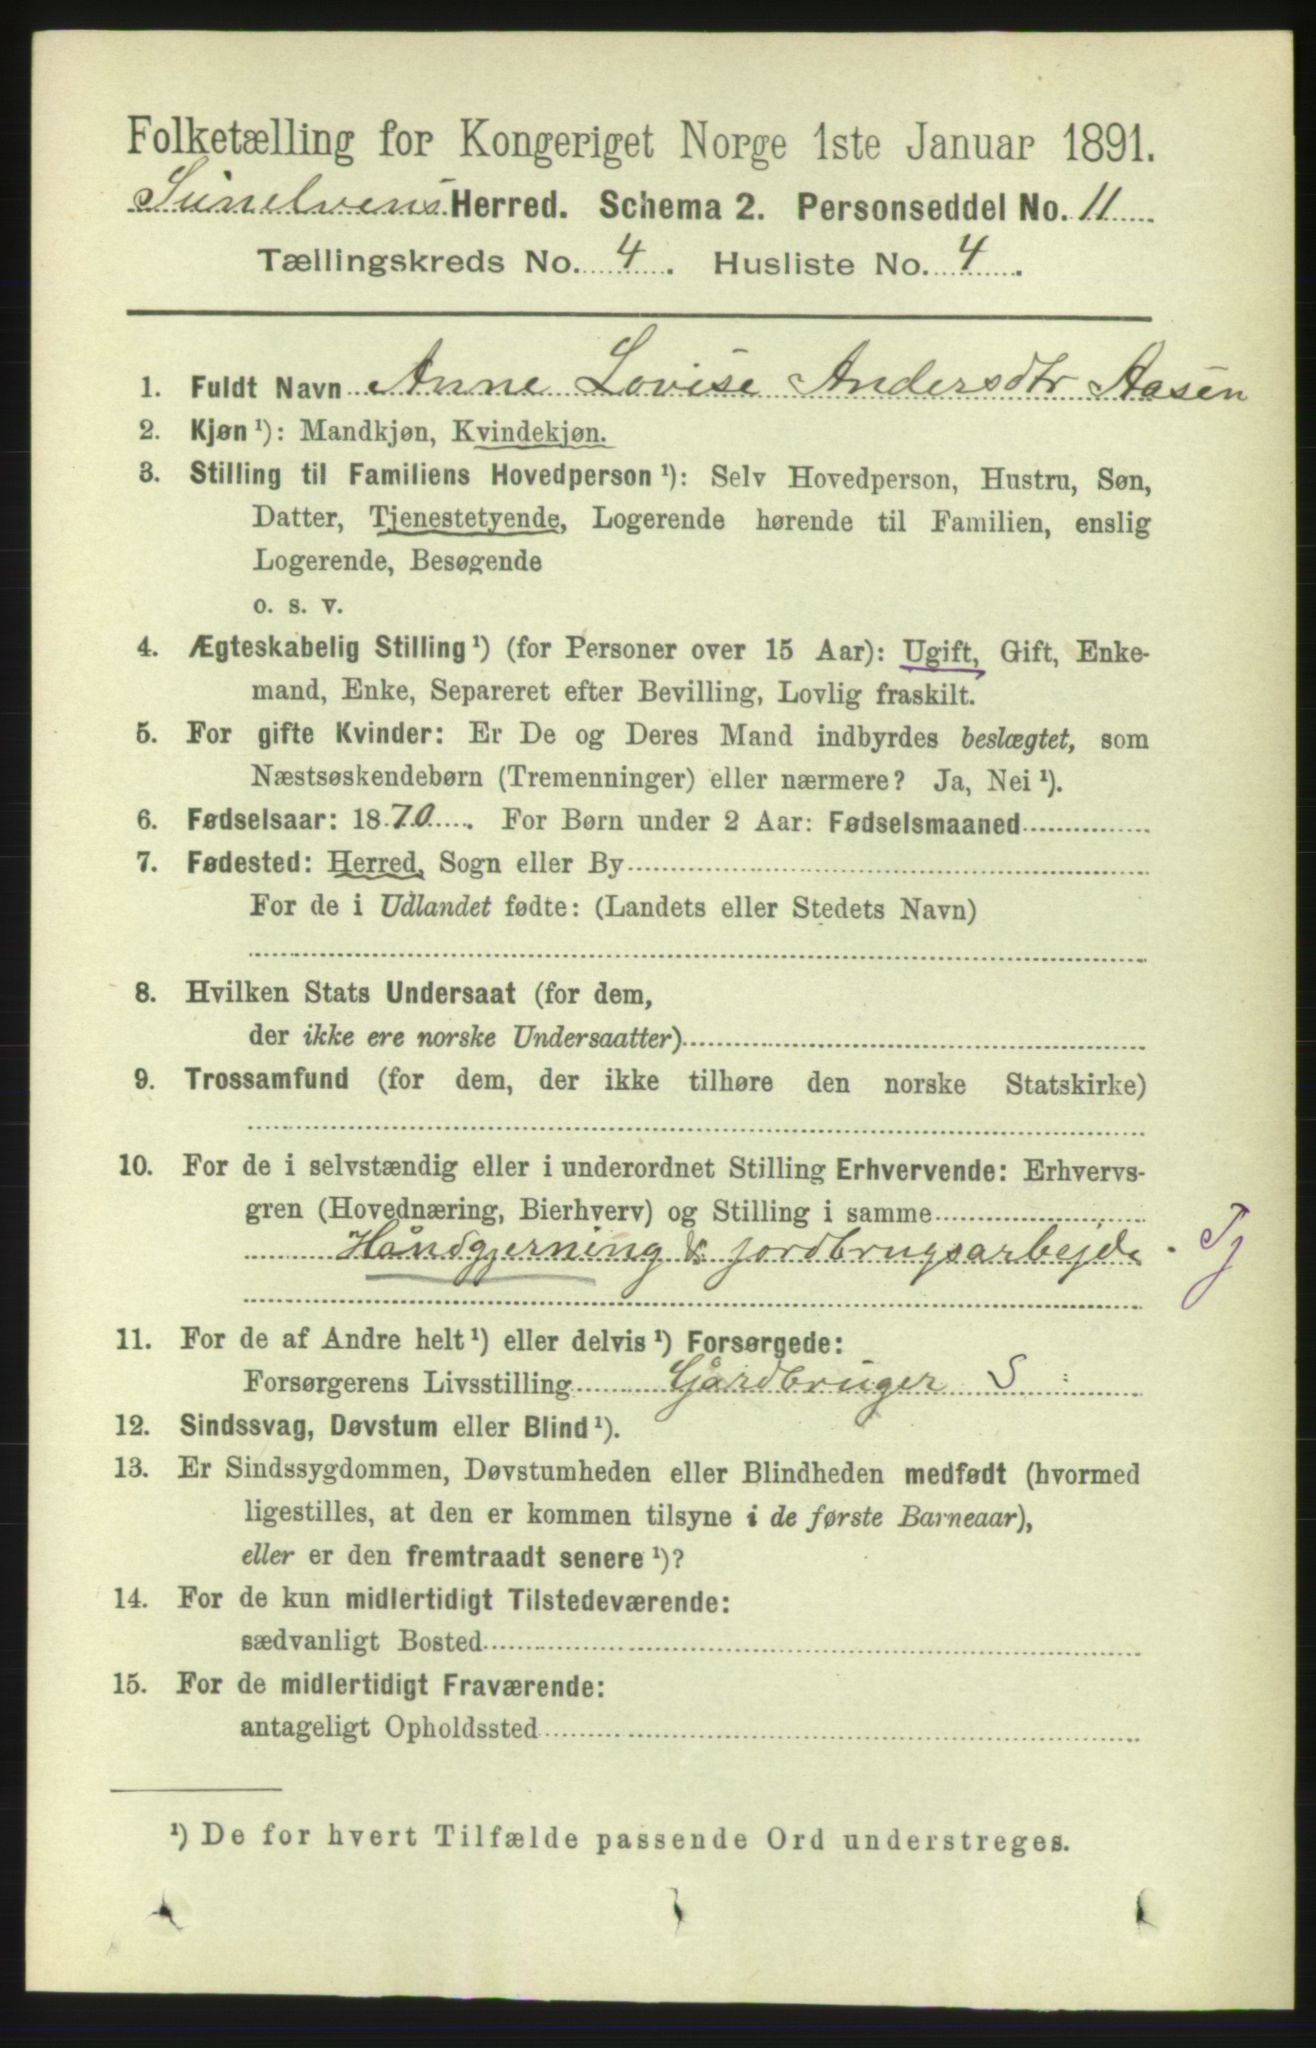 Folketælling for Kongeriget Norge 1ste Januar 1891.
Sunelvens Herred. Schema 2. Personseddel No. 11
Tællingskreds No. 4. Husliste No. 4.
1. Fuldt Navn Anne Lovise Andersdtr Aasen
2. Kjøn¹): Mandkjøn, Kvindekjøn.
3. Stilling til Familiens Hovedperson¹): Selv Hovedperson, Hustru, Søn,
Datter, Tjenestetyende, Logerende hørende til Familien, enslig
Logerende, Besøgende
o. s. v.
4. Ægteskabelig Stilling¹) (for Personer over 15 Aar): Ugift, Gift, Enke-
mand, Enke, Separeret efter Bevilling, Lovlig fraskilt.
5. For gifte Kvinder: Er De og Deres Mand indbyrdes beslægtet, som
Næstsøskendebørn (Tremenninger) eller nærmere? Ja, Nei¹).
6. Fødselsaar: 1870. For Børn under 2 Aar: Fødselsmaaned
7. Fødested: Herred, Sogn eller By
For de i Udlandet fødte: (Landets eller Stedets Navn)
8. Hvilken Stats Undersaat (for dem,
der ikke ere norske Undersaatter)
9. Trossamfund (for dem, der ikke tilhøre den norske Statskirke)
10. For de i selvstændig eller i underordnet Stilling Erhvervende: Erhvervs-
gren (Hovednæring, Bierhverv) og Stilling i samme
Håndgjerning & jordbrugsarbejde. Tj
11. For de af Andre helt¹) eller delvis¹) Forsørgede:
Forsørgerens Livsstilling Gårdbruger S
12. Sindssvag, Døvstum eller Blind¹).
13. Er Sindssygdommen, Døvstumheden eller Blindheden medfødt (hvormed
ligestilles, at den er kommen tilsyne i de første Barneaar),
eller er den fremtraadt senere¹)?
14. For de kun midlertidigt Tilstedeværende:
sædvanligt Bosted
15. For de midlertidigt Fraværende:
antageligt Opholdssted
¹) De for hvert Tilfælde passende Ord understreges.